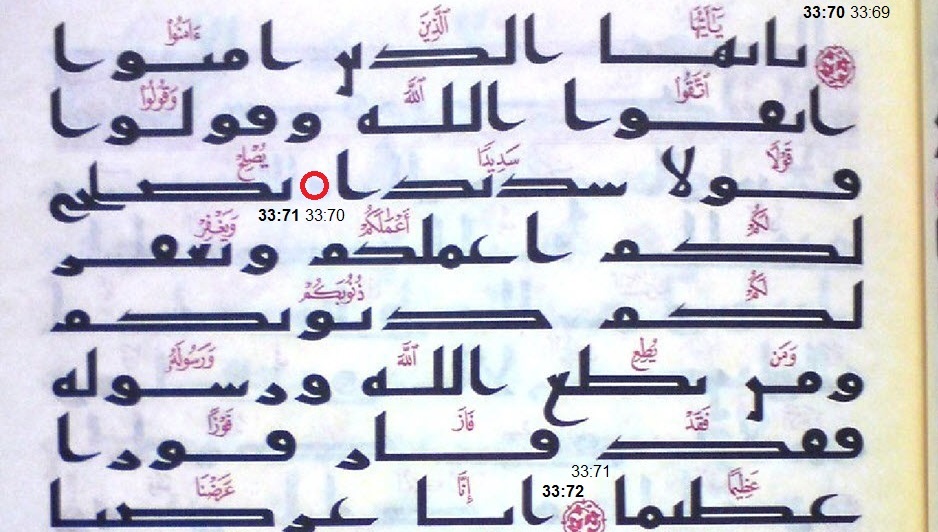 33:70 33:69
يَٰٓأَيُّهَا ٱلَّذِينَ ءَامَنُوا۟
ىاىها الدىں امىوا
ٱتَّقُوا۟ ٱللَّهَ وَقُولُوا۟
اىڡوا الله وڡولوا
قَوْلًا سَدِيدًا يُصْلِحْ
ڡولا سدىدا ىصلح
33:71 33:70
لَكُمْ أَعْمَٰلَكُمْ وَيَغْفِرْ
لكم اعملكم وىعڡر
لَكُمْ ذُنُوبَكُمْ
لكم دىوىكم
وَمَن يُطِعِ ٱللَّهَ وَرَسُولَهُۥ
ومں ىطع الله ورسوله
فَقَدْ فَازَ فَوْزًا
ڡڡد ڡار ڡورا
33:71
33:72
عَظِيمًا إِنَّا عَرَضْنَا
عطىما اىا عرصىا